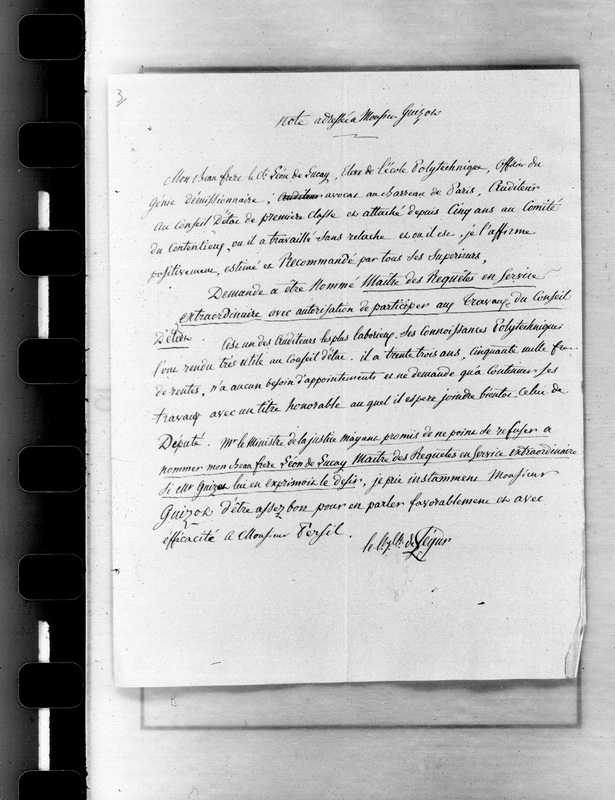 3
Note adressée à Monsieur Guizot
Mon beau frere le Cte Léon de Luçay, Eleve de l'école Polytechnique, officier du
génie démissionnaire, avocat au barreau de Paris, Auditeur
au Conseil D'état de première classe et attaché depuis Cinq ans au Comité
du Contentieux, ou il a travaillé sans relache et ou il est, je l'affirme
positivement, estimé et Recommandé par tous ses Superieurs,
Demande a etre Nommé Maitre des Requêtes en Service
extraordinaire avec autorisation de participer aux travaux du Conseil
D'état. C'est un des auditeurs les plus laborieux, ses connoissances Polytechniques
l'ont rendu très utile au Conseil d'état. il a trente trois ans, cinquante mille
de rentes, n'a aucun besoin d'appointements et ne demande qu'a Continuer ses
travaux avec un titre honorable au quel il espere joindre bientot celui de
Deputé. Mr le Ministre de la justice m'ayant promis de ne point se refuser a
nommer mon beau frere Léon de Luçay Maitre des Requetes en Service extraordinaire
si Mr Guizot lui en exprimoit le desir, je prie instamment Monsieur
Guizot d'être assez bon pour en parler favorablement et avec
éfficacité a Monsieur Persil.
de Ségur